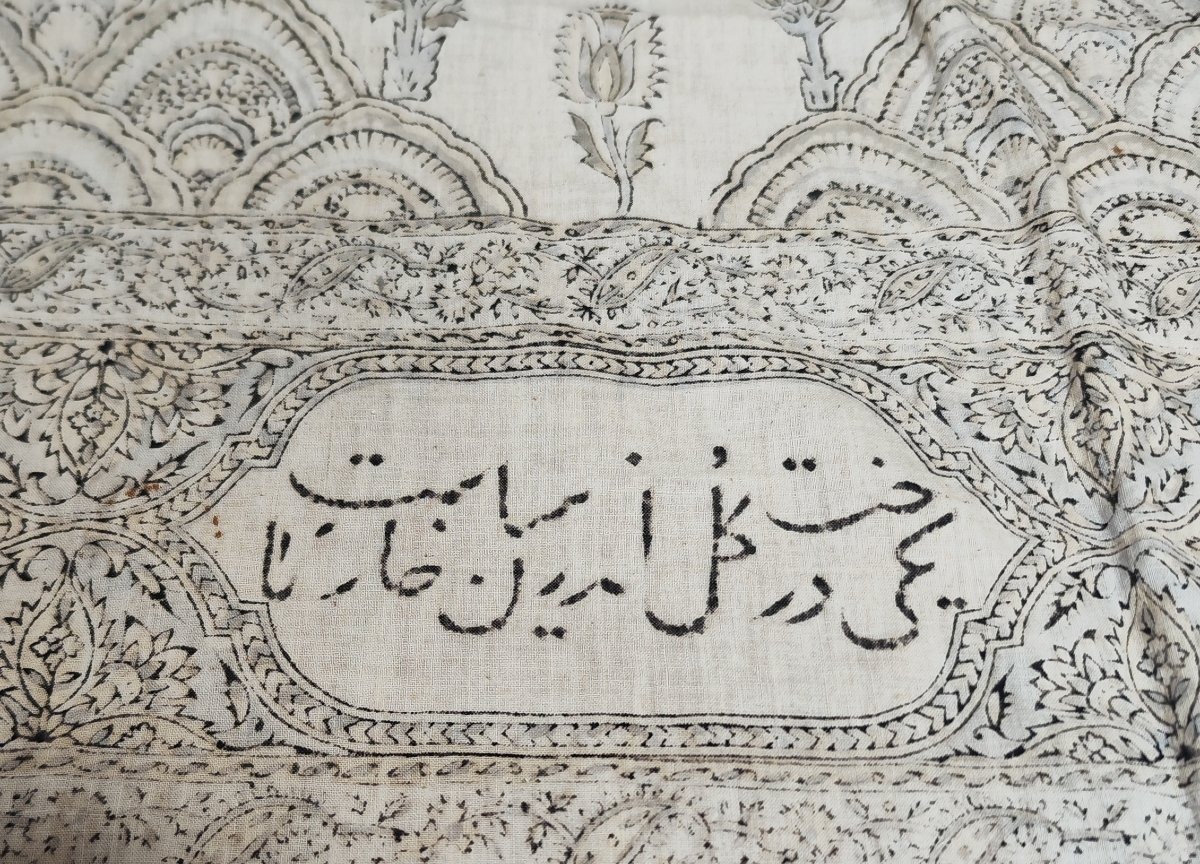 یکی درخت گل اندر میان خانه ماست